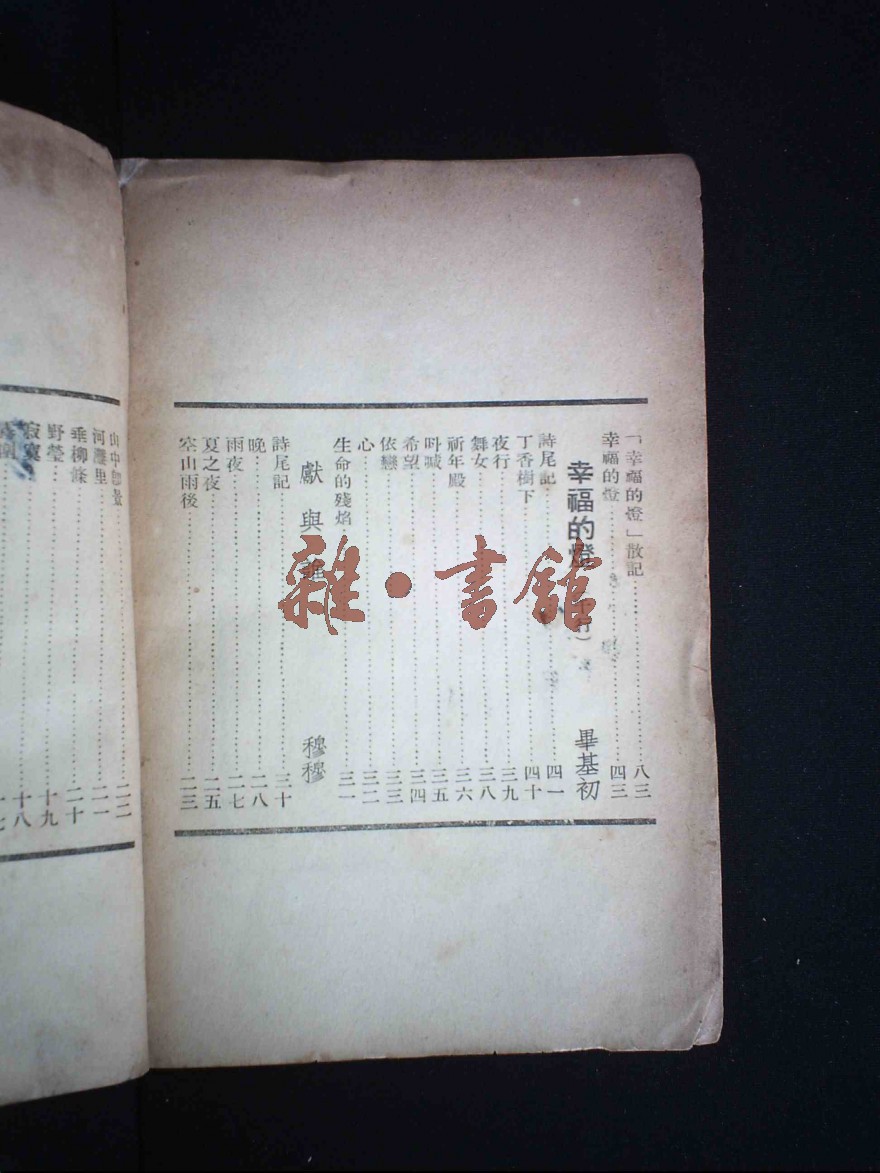 寂寞 十八
野瑩 十九
垂柳條 二十
河灘里 二一
山中 二二
空山雨後 二三
夏之夜 二五
雨夜 二七
晚 二八
詩尾記 三十
獻與誰 穆穆
生命的殘焰 三一
心 三二
依戀 三三
希望 三四
吶喊 三五
祈年殿 三六
舞女 三八
夜行 三九
丁香樹下 四十
詩尾記 四一
幸福的燈 畢基初
幸福的燈 四三
「幸福的燈」散記 八三
雜·書館